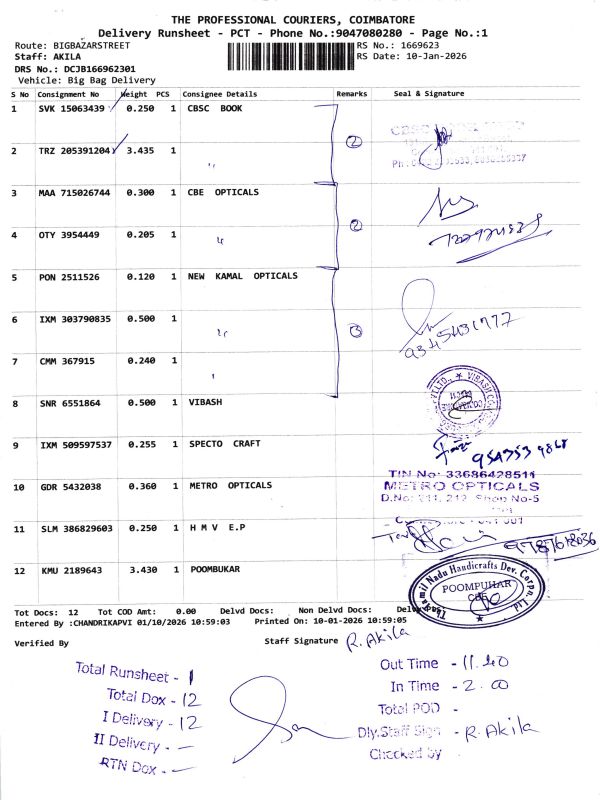 THE PROFESSIONAL COURIERS, COIMBATORE
Delivery Runsheet - PCT - Phone No.:9047080280 - Page No.:1
Route: BIGBAZARSTREET
RS No.: 1669623
Staff: AKILA
RS Date: 10-Jan-2026
DRS No.: DCJB166962301
Vehicle: Big Bag Delivery
S No Consignment No Weight PCS Consignee Details Remarks Seal & Signature
1 SVK 15063439 0.250 1 CBSC BOOK
2 TRZ 205391204 3.435 1 " ②
3 MAA 715026744 0.300 1 CBE OPTICALS
4 OTY 3954449 0.205 1 " ②
5 PON 2511526 0.120 1 NEW KAMAL OPTICALS
6 IXM 303790835 0.500 1 " ③
9345431777
7 CMM 367915 0.240 1 "
8 SNR 6551864 0.500 1 VIBASH
9 IXM 509597537 0.255 1 SPECTO CRAFT
TIN No: 33686428511
10 GDR 5432038 0.360 1 METRO OPTICALS METRO OPTICALS
D.No: 211, 212, Shop No-5
11 SLM 386829603 0.250 1 H M V E.P
12 KMU 2189643 3.430 1 POOMBUKAR
Tamil Nadu Handicrafts Dev. Corpn. Ltd.
POOMPUHAR
Tot Docs: 12 Tot COD Amt: 0.00 Delvd Docs: Non Delvd Docs:
Entered By :CHANDRIKAPVI 01/10/2026 10:59:03 Printed On: 10-01-2026 10:59:05
Verified By Staff Signature R. Akila
Total Runsheet - 1
Total Dox - 12
I Delivery - 12
II Delivery - —
RTN Dox - —
Out Time - 11.40
In Time - 2.00
Total POD -
Dly.Staff Sign - R. Akila
Checked by